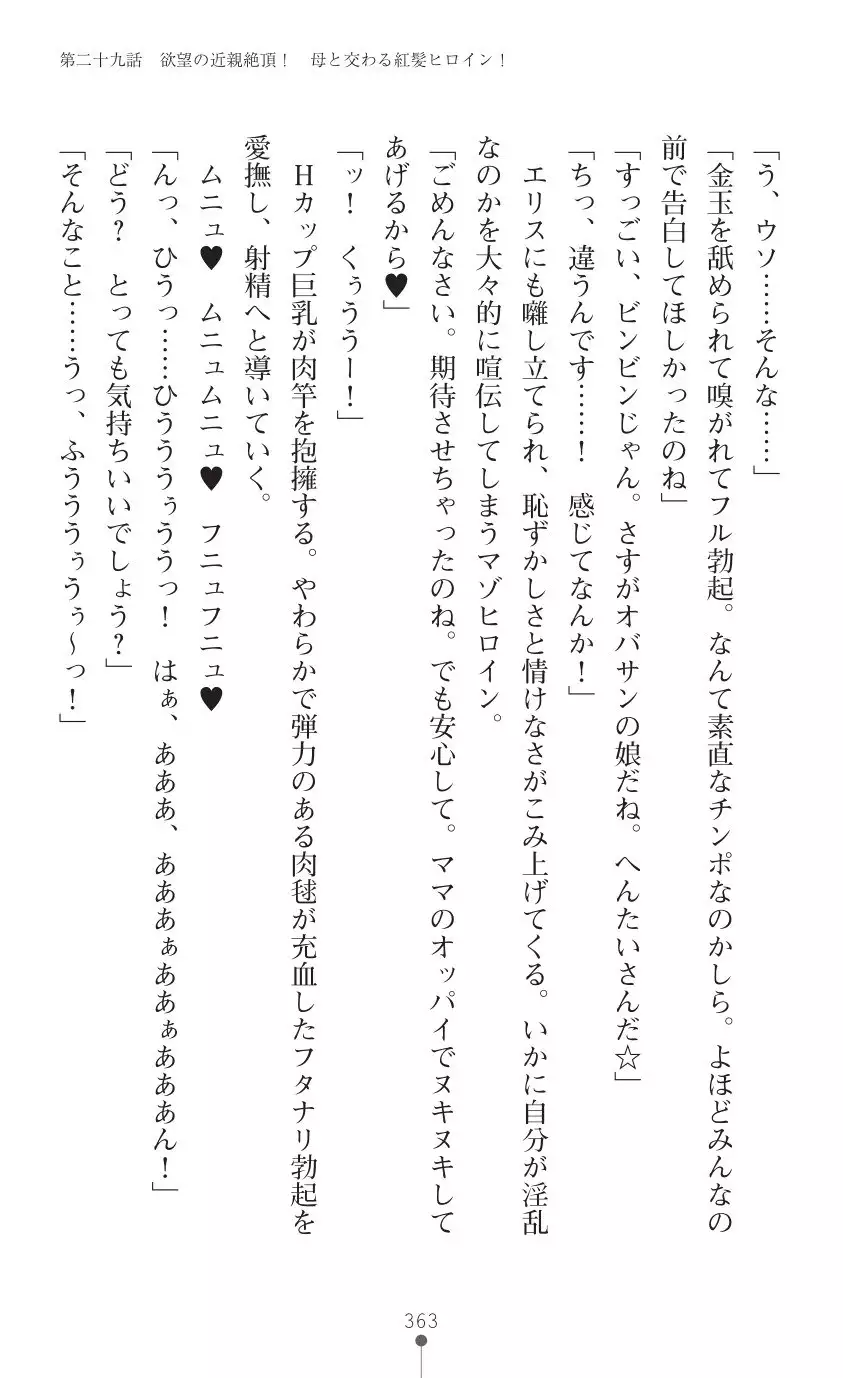 第二十九話　欲望の近親絶頂！　母と交わる紅髪ヒロイン！
「う、ウソ……そんな……」
「金玉を舐められて嗅がれてフル勃起。なんて素直なチンポなのかしら。よほどみんなの
前で告白してほしかったのね」
「すっごい、ビンビンじゃん。さすがオバサンの娘だね。へんたいさんだ☆」
「ちっ、違うんです……！　感じてなんか！」
　エリスにも囃し立てられ、恥ずかしさと情けなさがこみ上げてくる。いかに自分が淫乱
なのかを大々的に喧伝してしまうマゾヒロイン。
「ごめんなさい。期待させちゃったのね。でも安心して。ママのオッパイでヌキヌキして
あげるから♥」
「ッ！　くぅううー！」
　Ｈカップ巨乳が肉竿を抱擁する。やわらかで弾力のある肉毬が充血したフタナリ勃起を
愛撫し、射精へと導いていく。
　ムニュ♥　ムニュムニュ♥　フニュフニュ♥
「んっ、ひうっ……ひうううぅううっ！　はぁ、あああ、あああぁああぁあああん！」
「どう？　とっても気持ちいいでしょう？」
「そんなこと……うっ、ふうううぅうぅ～っ！」
363